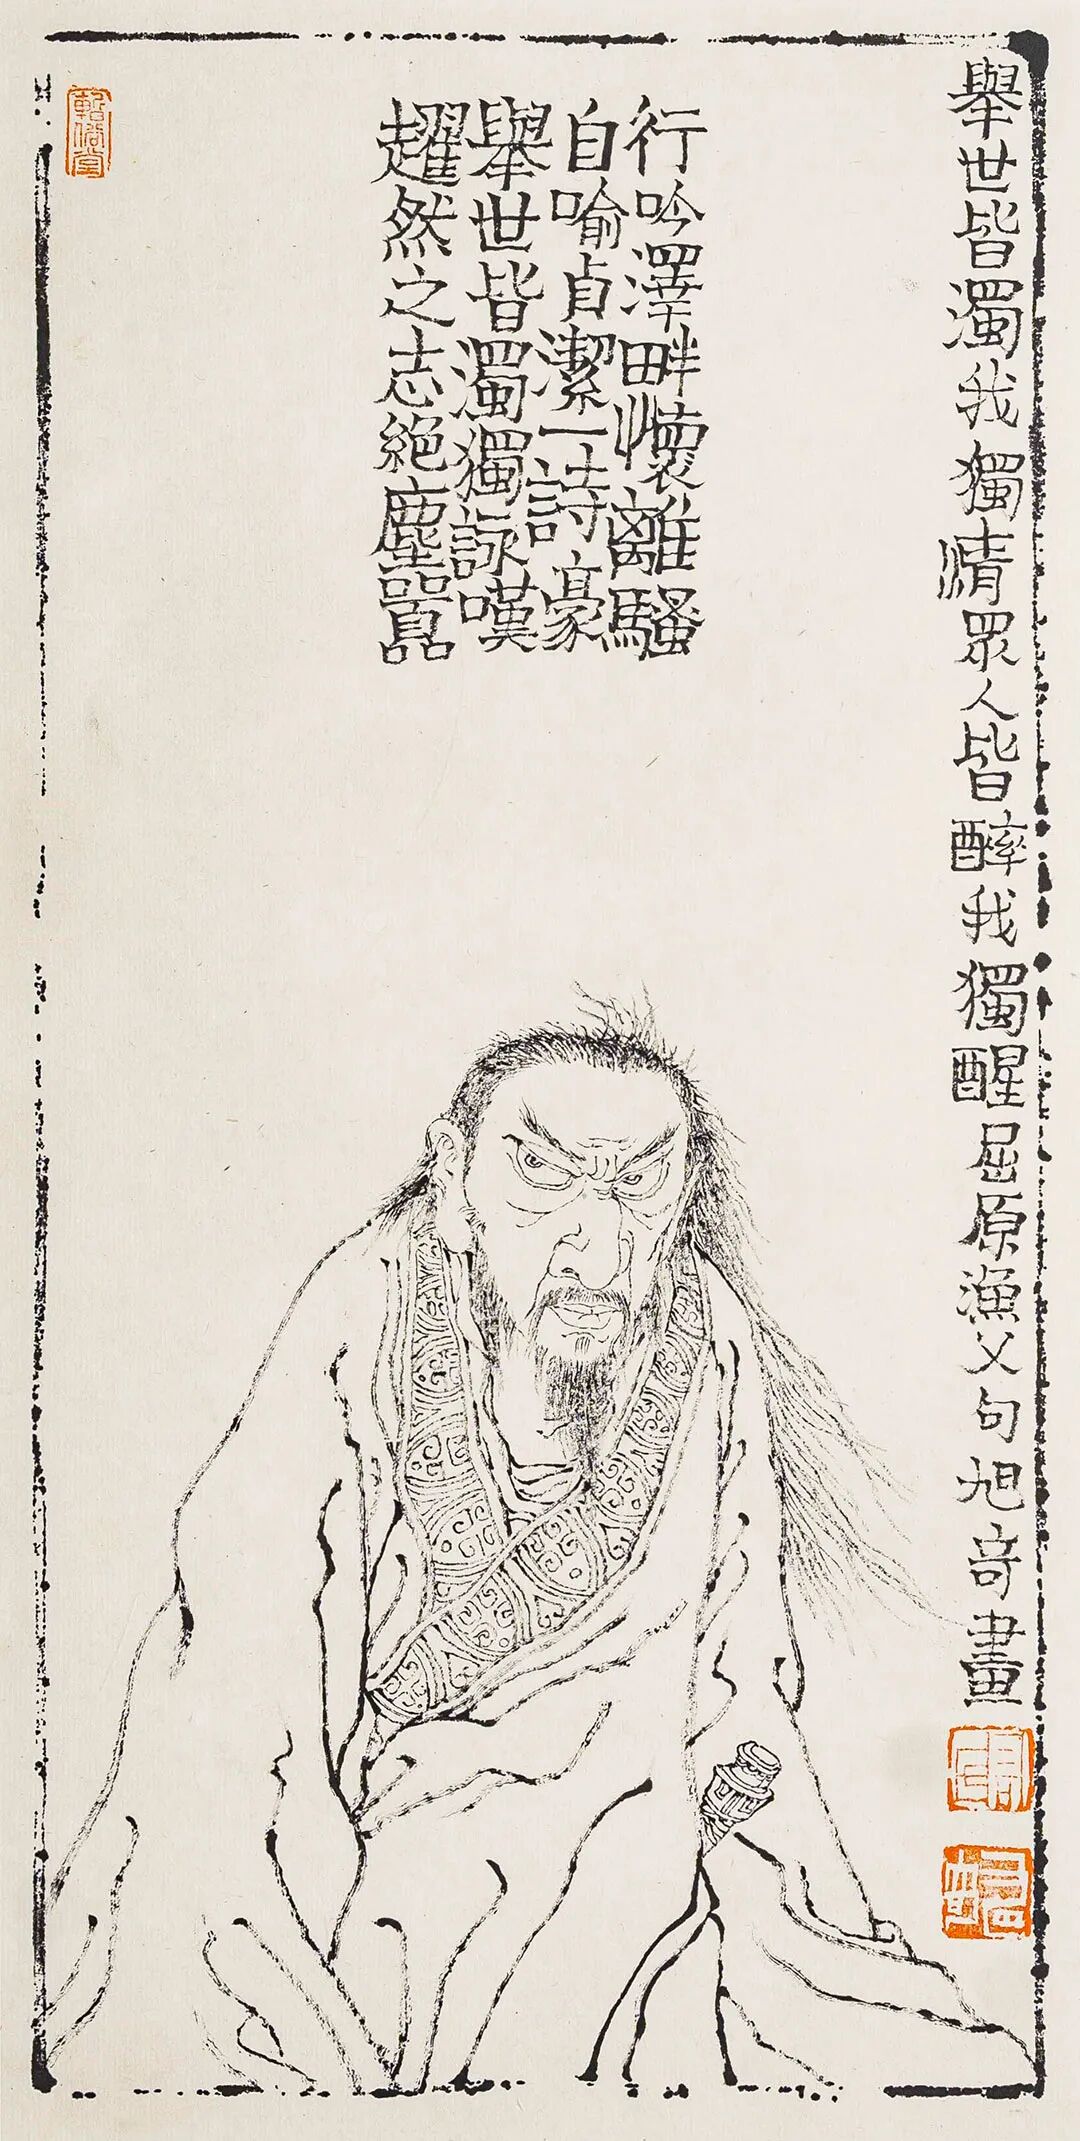 舉世皆濁我獨清眾人皆醉我獨醒屈原漁父句旭奇畫
行吟澤畔懷離騷
自喻貞潔一詩豪
舉世皆濁獨詠嘆
趯然之志絕塵囂